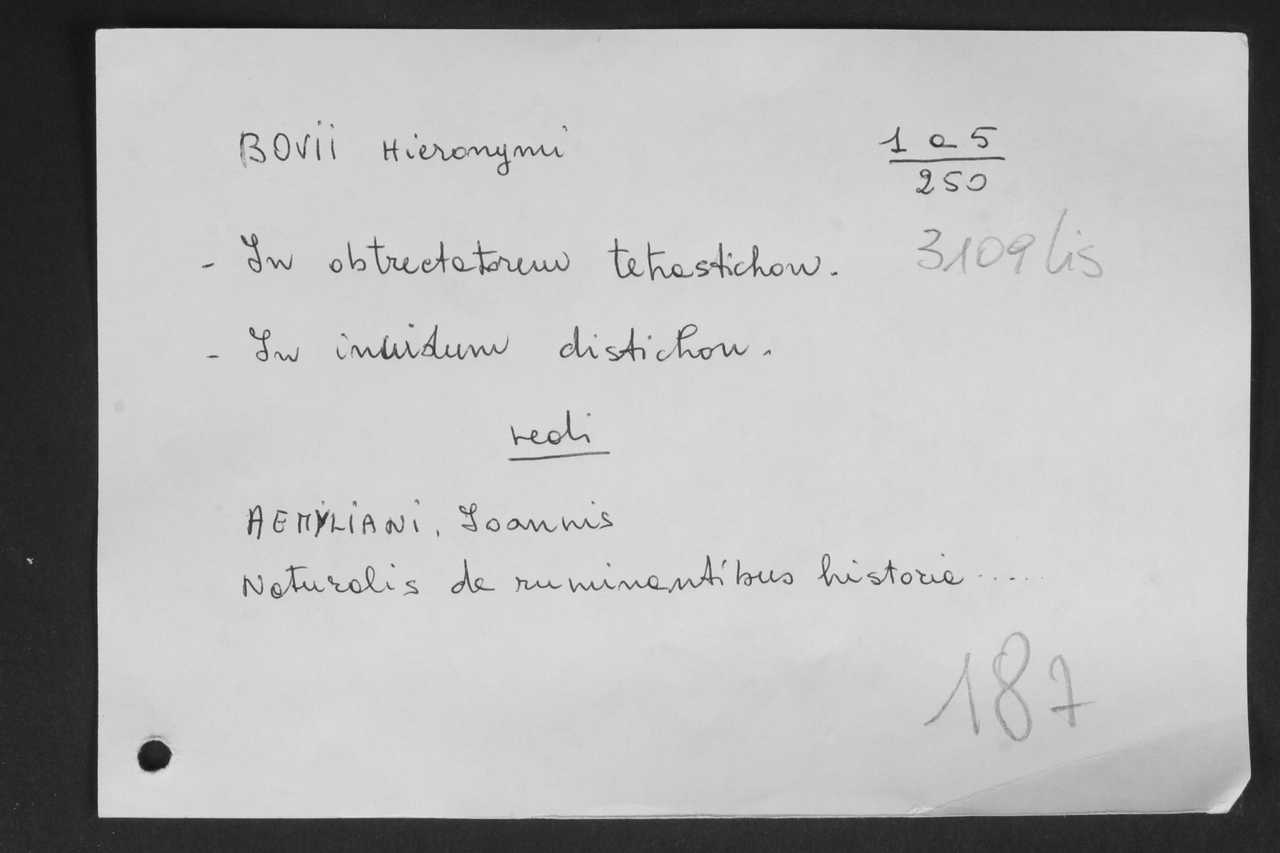 BOVII Hieronymi
1 a 5
250
- In obtrectatorem tetrastichon.
3109 bis
- In invidum distichon.
vedi
AEMYLIANI, Joannis
Naturalis de ruminantibus historia .....
187